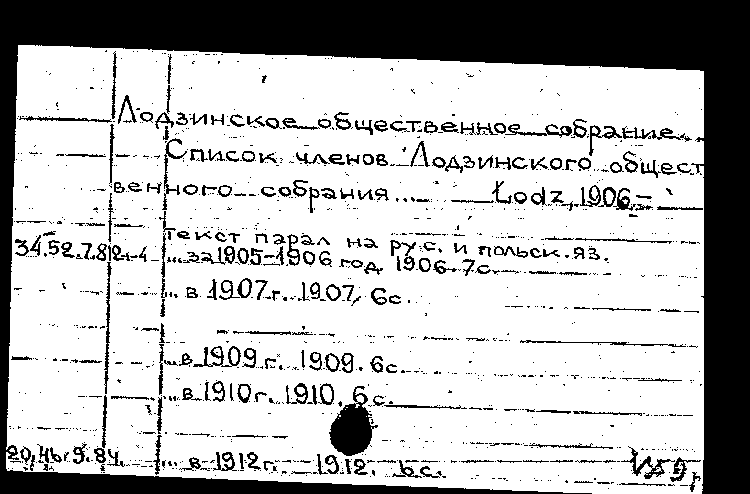 Лодзинское общественное собрание.
Список членов Лодзинского общест
венного собрания... Łodz, 1906.—
текст парал на рус. и польск. яз.
34.52.7.82 ... за 1905-1906 год 1906. 7с.
... в 1907 г. 1907, 6с.
... в 1909 г. 1909. 6с.
... в 1910 г. 1910. 6с.
... в 1912 г. 1912. 6с.